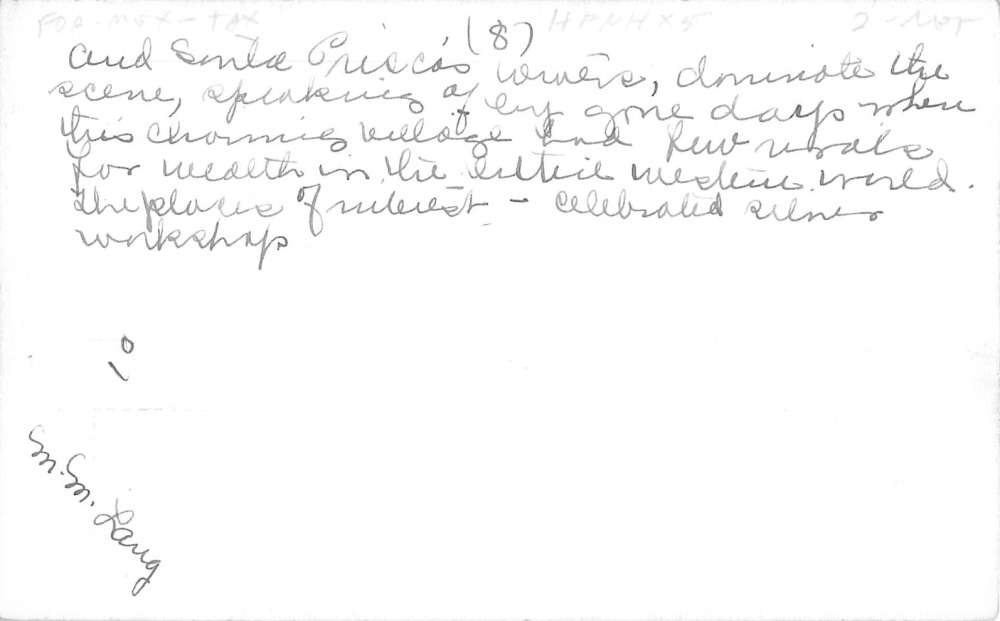 FOR-MEX-TAX HPNHX5
(8)
and Santa Prisca's towers, dominate the
scene, speaking of by gone days when
this charming village had few rivals
for wealth in the entire western world.
The places of interest - celebrated silver
workshops
10
M. M. Lang